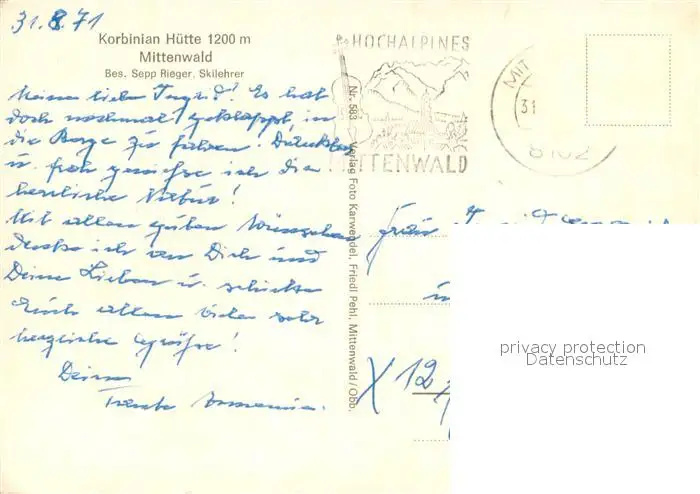 31.8.71
Korbinian Hütte 1200 m
Mittenwald
Bes. Sepp Rieger. Skilehrer
Meine liebe Ingrid! Es hat
doch nochmal geklappt, in
die Berge zu fahren. Dankbar
u. froh genieße ich die
herrliche Natur!
Mit allen guten Wünschen
denke ich an Dich und
Deine Lieben u. schicke
Euch allen viele sehr
herzliche Grüße!
Deine
Tante
HOCHALPINES
MITTENWALD
Nr. 583 Verlag Foto Karwendel, Friedl Pehl, Mittenwald/Obb.
MIT
31
8102
Frau Ingrid
X 12
privacy protection
Datenschutz